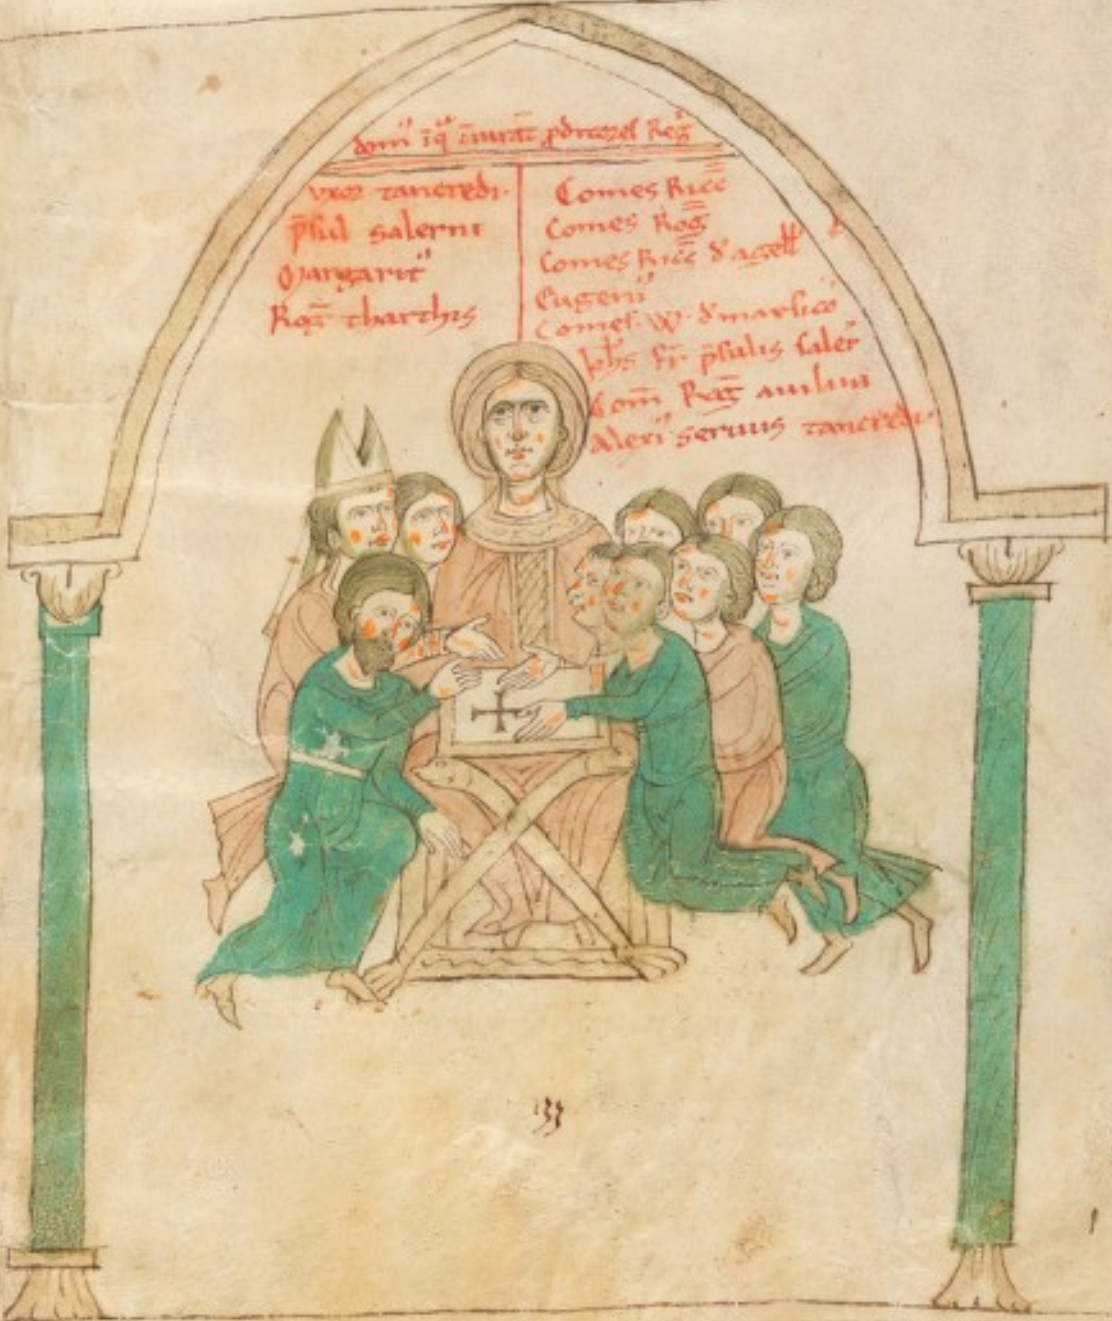 dom' īq' ꝯiurāt ꝓditores Reg'
uxor tancredi.
p̄sul salerni
Margarit'
Rog̅ tharthis
Comes Ricc̄
Comes Rog̅
Comes Ricc̄ d' agell'
Eugeni'
Comes. W. d' marsico
Ioh̄s fr̄ p̄sulis saler̄
Com̄ Rog̅ avilini
Alexi' servus tancredi.
137